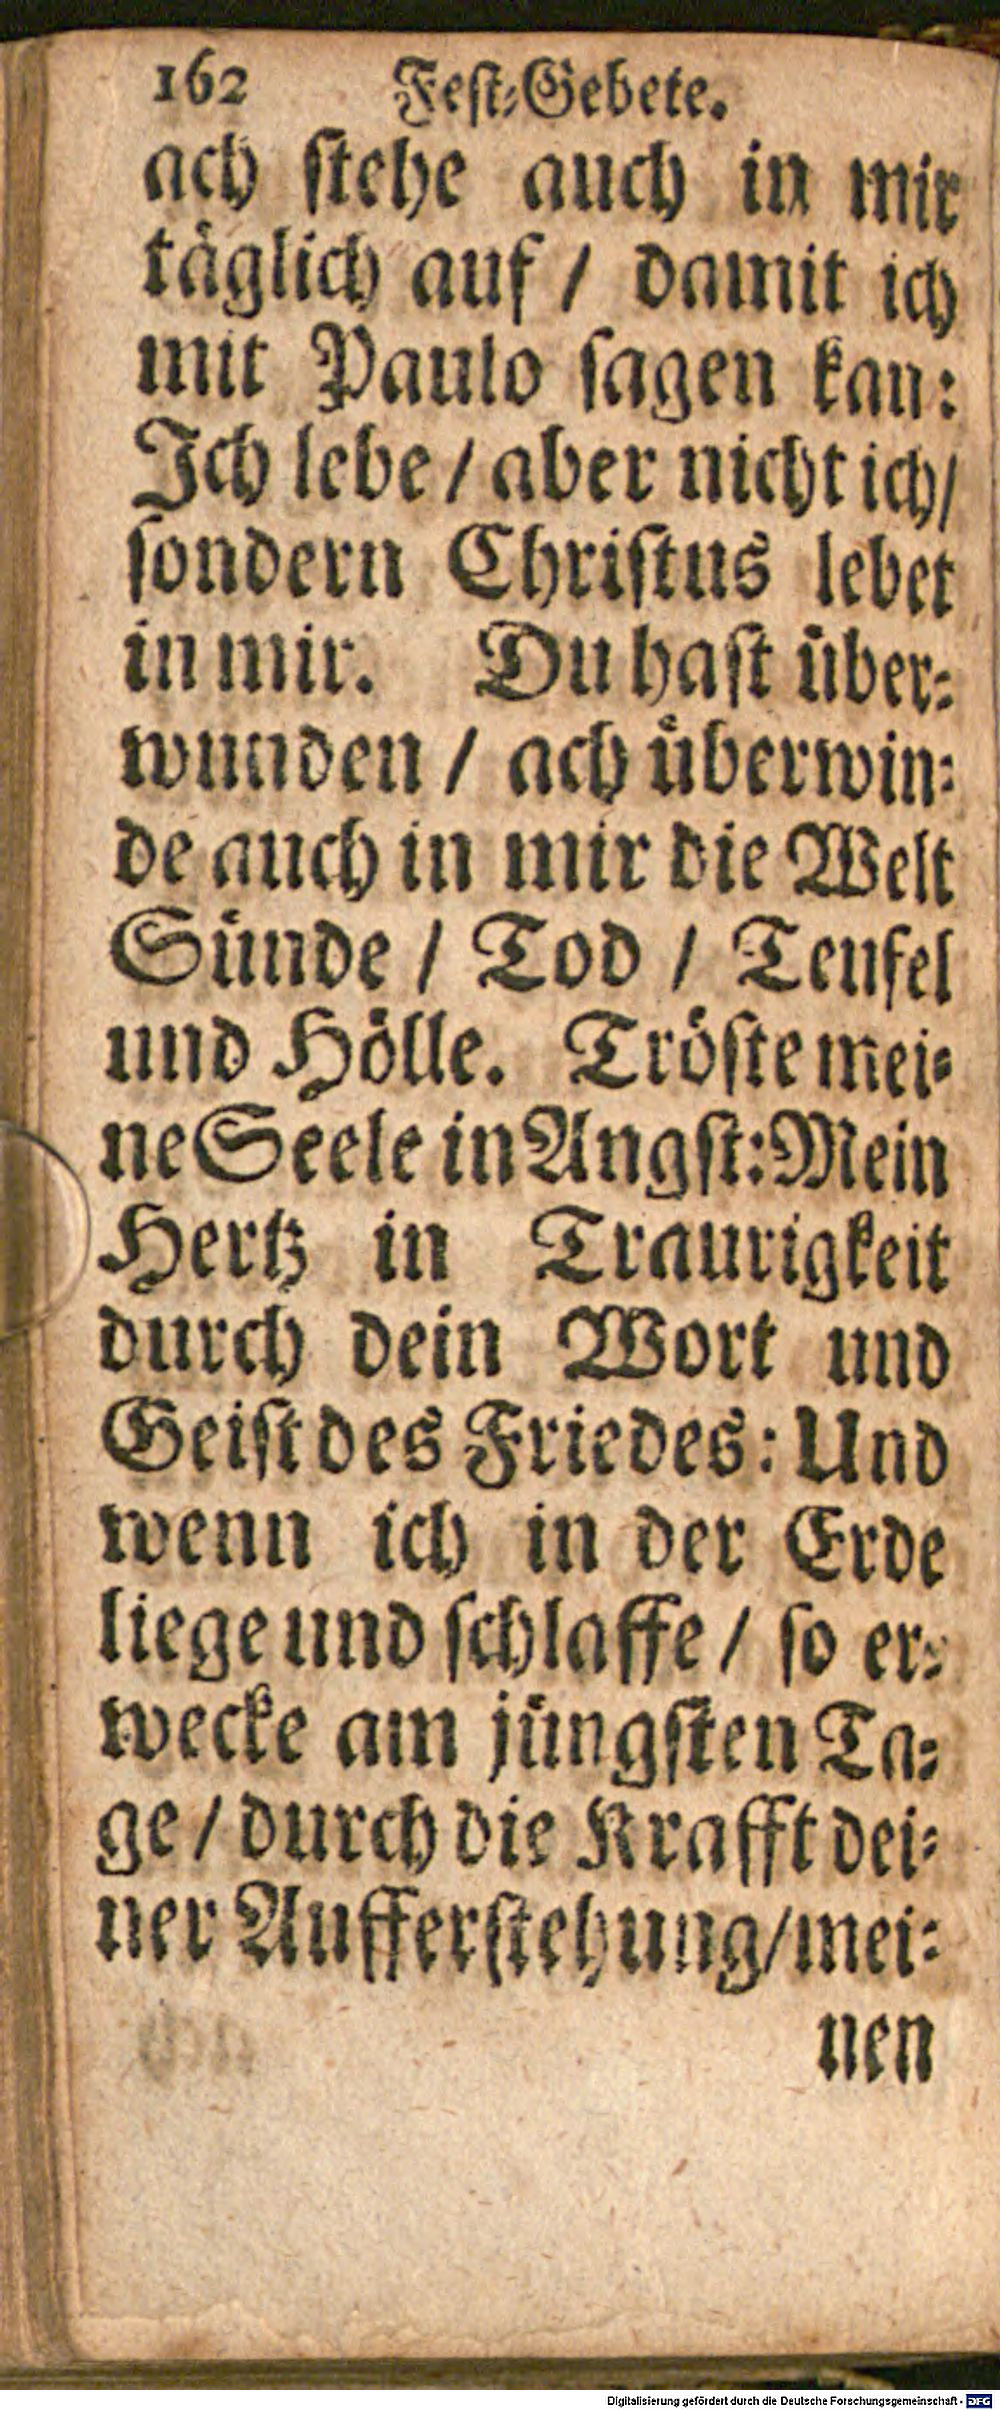 162 Feſt⸗Gebete.
ach ſtehe auch in mir
taͤglich auf / damit ich
mit Paulo ſagen kan:
Ich lebe / aber nicht ich/
ſondern Chriſtus lebet
in mir. Du haſt uͤber⸗
wunden / ach uͤberwin⸗
de auch in mir die Welt
Suͤnde / Tod / Teufel
und Hoͤlle. Troͤſte mei⸗
ne Seele in Angſt: Mein
Hertz in Traurigkeit
durch dein Wort und
Geiſt des Friedes: Und
wenn ich in der Erde
liege und ſchlaffe / ſo er⸗
wecke am juͤngſten Ta⸗
ge / durch die Krafft dei⸗
ner Aufferſtehung/mei⸗
nen
Digitalisierung gefördert durch die Deutsche Forschungsgemeinschaft - DFG